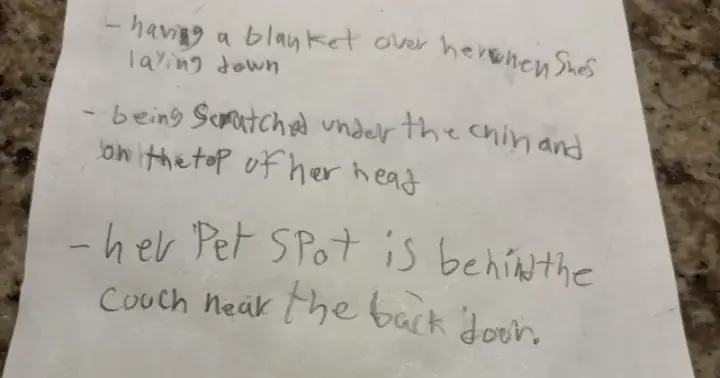 - having a blanket over her when shes
laying down
- being scratched under the chin and
on the top of her head
- her Pet SPot is behind the
couch near the back door.